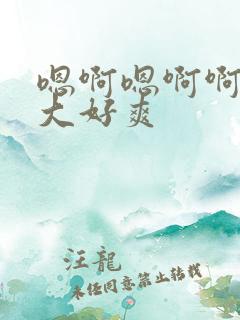 嗯啊嗯啊啊
大好爽
汪龍
未经同意禁止转载